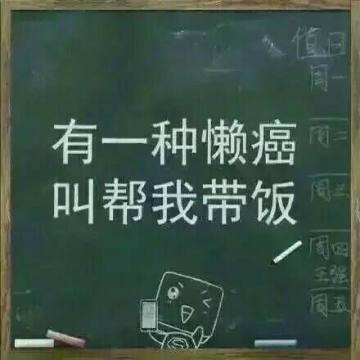 有一种懒癌
叫帮我带饭
值日
周一
周二
周三
周四
王强
周五